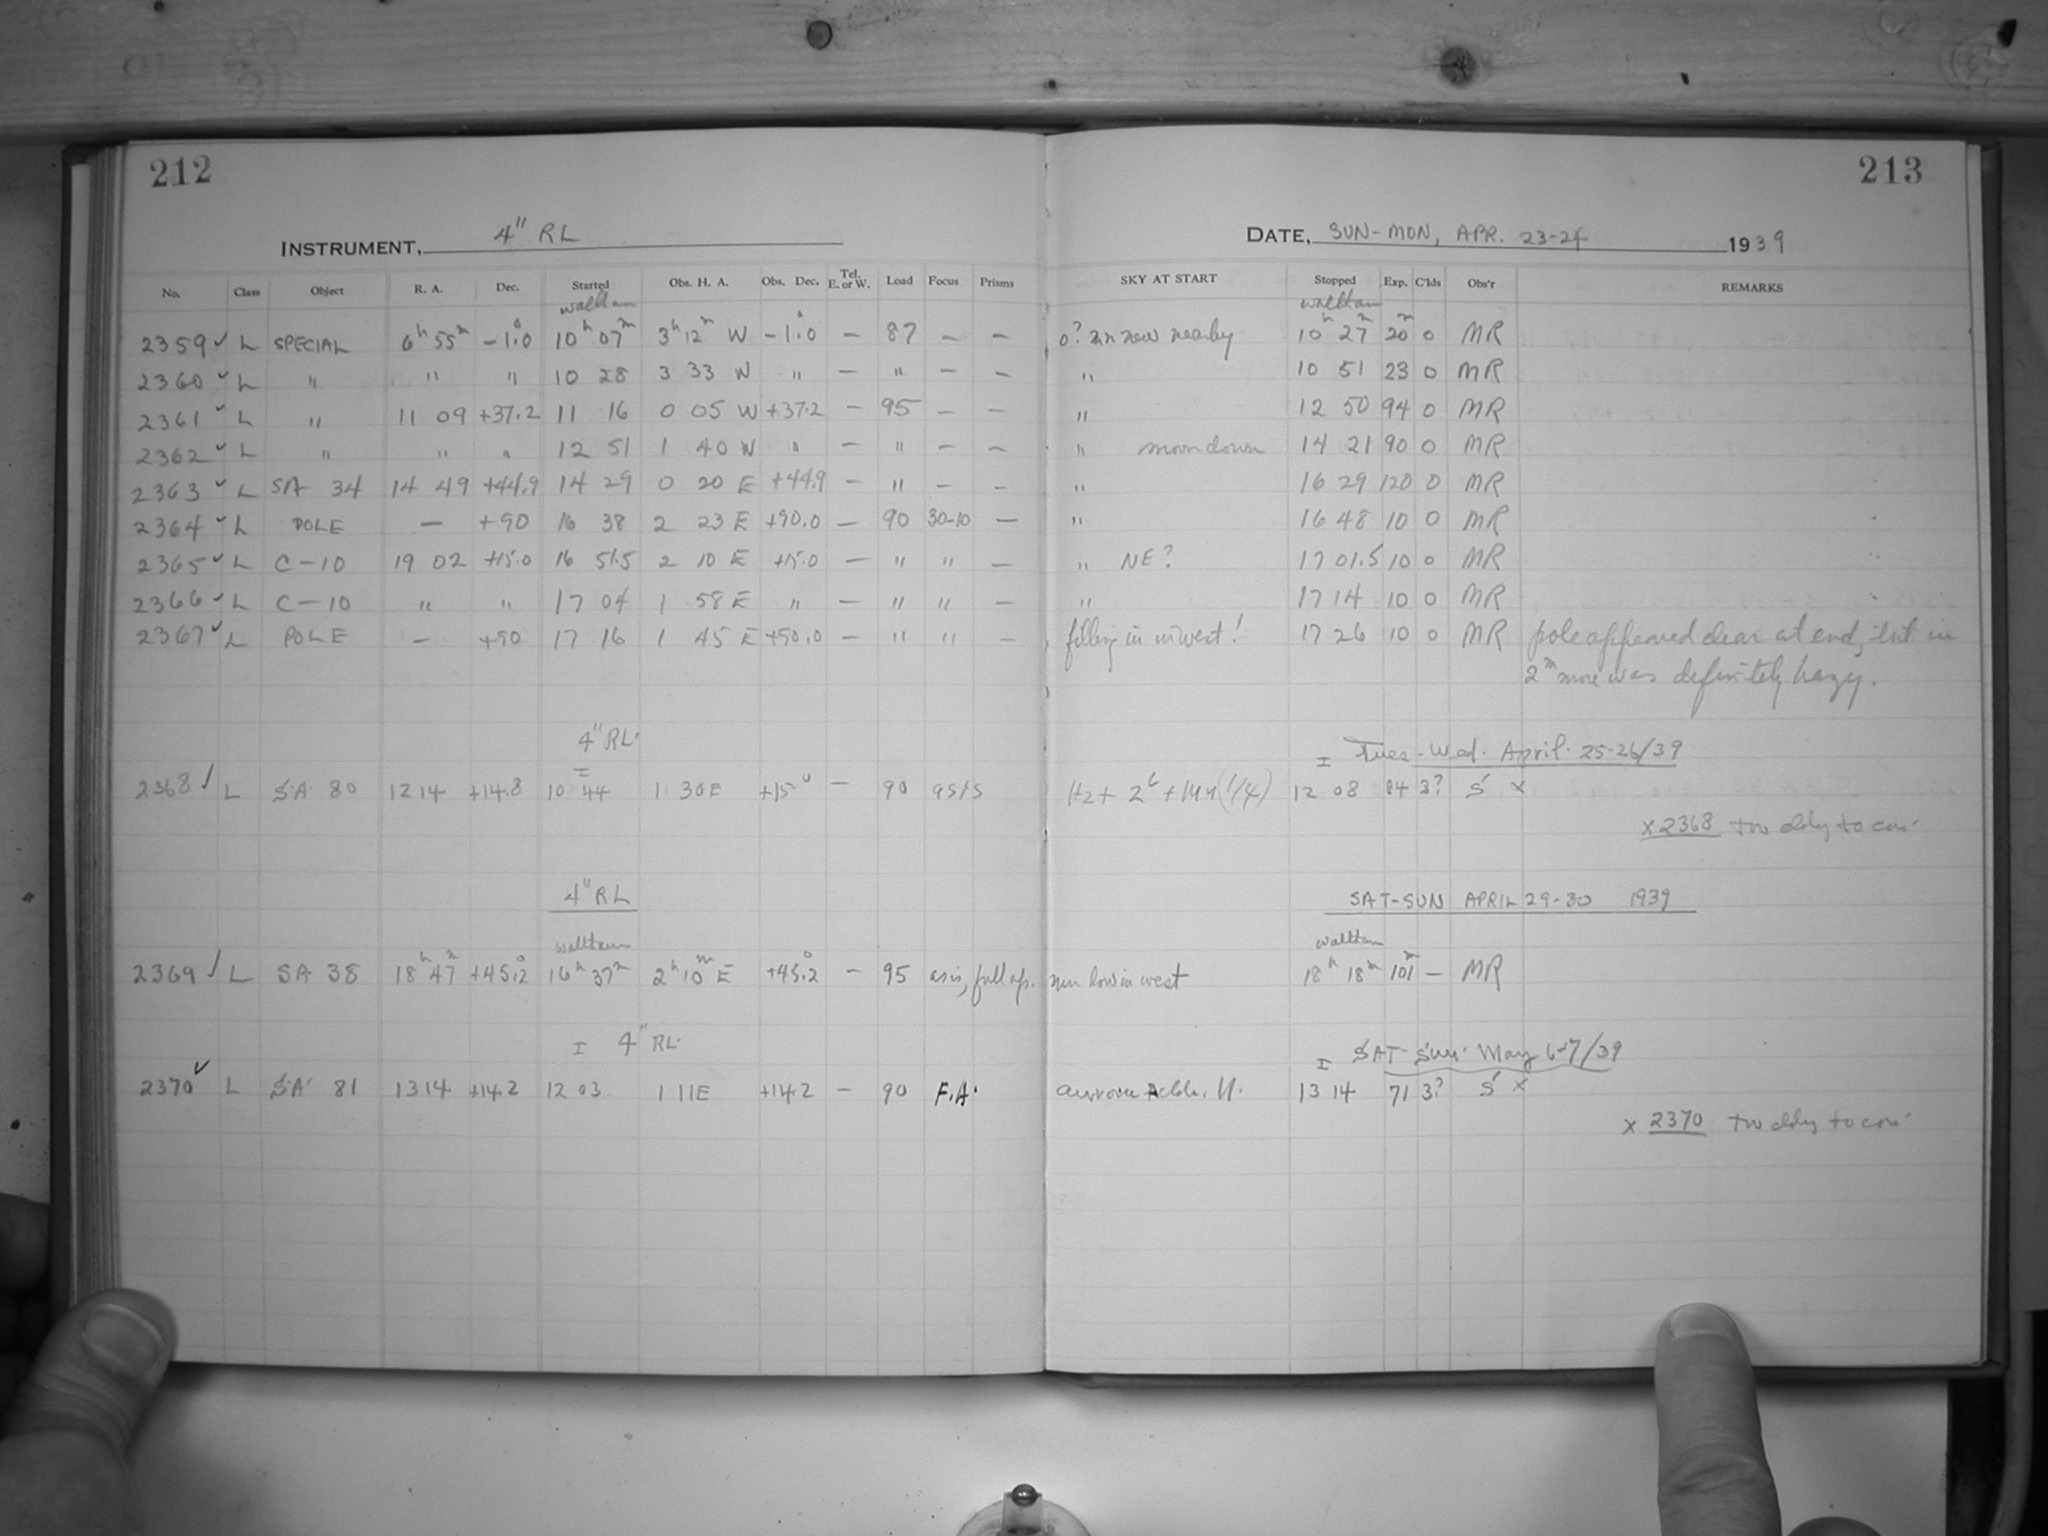 212
213
INSTRUMENT, 4" RL
DATE, SUN-MON, APR. 23-24 1939
No. Class Object R. A. Dec. Started Obs. H. A. Obs. Dec. Tel. E. or W. Load Focus Prisms SKY AT START Stopped Exp. C'lds Obs'r REMARKS
waltham waltham
2359 ✓ L SPECIAL 6h 55m -1.0 10h 07m 3h 12m W -1.0 - 87 - - 0? mn near nearby 10h 27m 20m 0 MR
2360 ✓ L " " " 10 28 3 33 W " - " - - " 10 51 23 0 MR
2361 ✓ L " 11 09 +37.2 11 16 0 05 W +37.2 - 95 - - " 12 50 94 0 MR
2362 ✓ L " " " 12 51 1 40 W " - " - - " moon down 14 21 90 0 MR
2363 ✓ L SA 34 14 49 +44.9 14 29 0 20 E +44.9 - " - - " 16 29 120 0 MR
2364 ✓ L POLE - +90 16 38 2 23 E +90.0 - 90 30-10 - " 16 48 10 0 MR
2365 ✓ L C-10 19 02 +15.0 16 51.5 2 10 E +15.0 - " " - " NE? 17 01.5 10 0 MR
2366 ✓ L C-10 " " 17 04 1 58 E " - " " - " 17 14 10 0 MR
2367 ✓ L POLE - +90 17 16 1 45 E +90.0 - " " - filling in in west! 17 26 10 0 MR pole appeared clear at end, but in
2m more was definitely hazy.
4" RL. I Tues-Wed. April. 25-26/39
I
2368 ✓ L SA 80 12 14 +14.8 10 44 1 30 E +15° - 90 Hz + + Mn (1/4) 12 08 84 3? S x
x 2368 too cldy to con.
4" RL SAT-SUN APRIL 29-30 1939
waltham waltham
2369 ✓ L SA 38 18h 47m +45.2 16h 37m 2h 10m E +45.2 - 95 as is, full ap. mn low in west 18h 18m 101 - MR
I 4" RL. I SAT-Sun. May 6-7/39
2370 ✓ L SA 81 13 14 +14.2 12 03 1 11 E +14.2 - 90 F.A. aurora N. 13 14 71 3? S x
x 2370 too cldy to con.